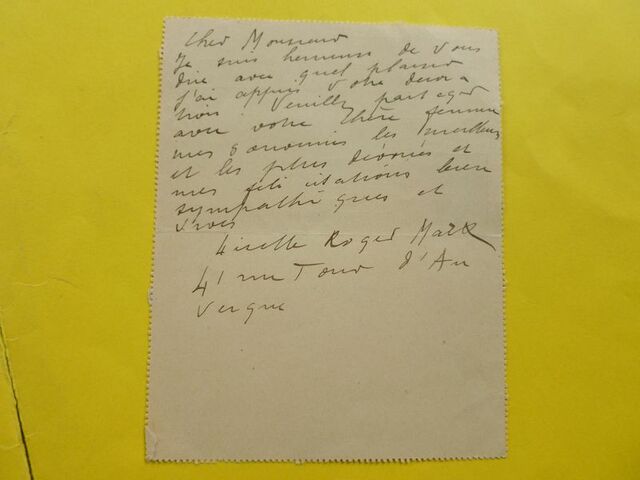 Cher Monsieur
Je suis heureuse de vous
dire avec quel plaisir
j'ai appris votre
trois Veuillez partager
avec votre chère femme
mes les meilleurs
et les plus dévoués et
mes félicitations bien
sympathiques et
vraies
Giselle Roger Marx
41 rue Tour d'Au
vergne